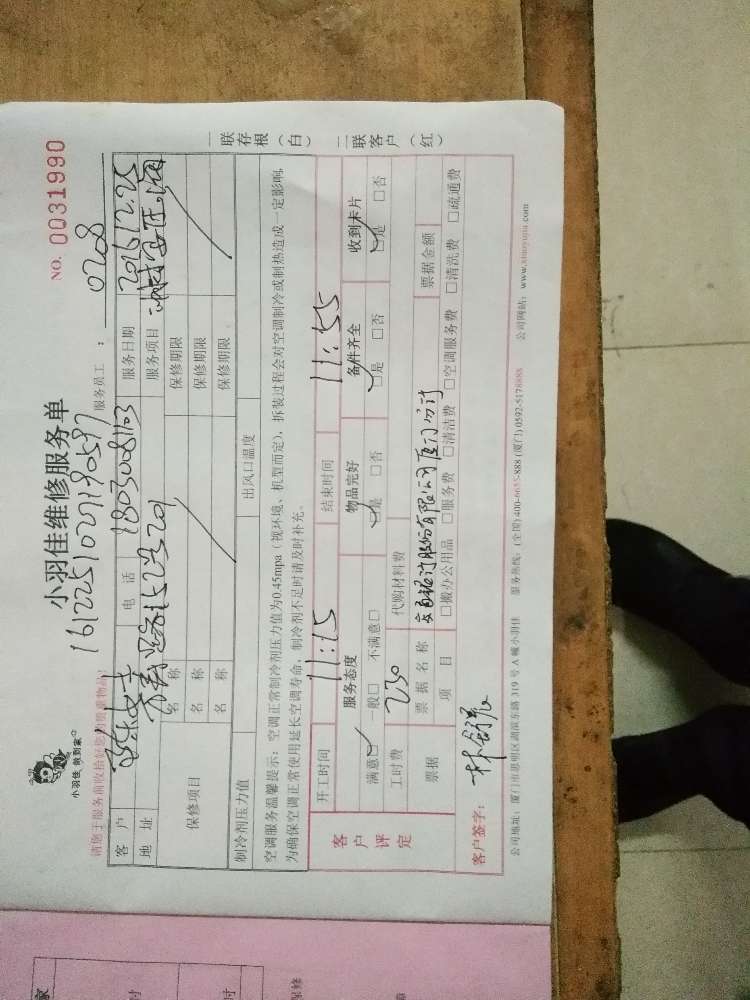 小羽佳,做到家
小羽佳维修服务单
NO. 0031990
1612251021190597
请您于服务前收拾好您的贵重物品!
服务员工: 0208
客户 陈女士 电话 18030081103 服务日期 2016.12.25
地址 服务项目
保修项目 名称 保修期限
名称 保修期限
名称 保修期限
制冷剂压力值 出风口温度
空调服务温馨提示:空调正常制冷剂压力值为0.45mpa(视环境、机型而定),拆装过程会对空调制冷或制热造成一定影响,
为确保空调正常使用延长空调寿命,制冷剂不足时请及时补充。
开工时间 11:15 结束时间 11:55
客户评定 服务态度 物品完好 备件齐全 收到卡片
满意□ 一般□ 不满意□ □是 □否 □是 □否 □是 □否
工时费 230 代购材料费
票据 票据名称 交通银行股份有限公司厦门分行 票据金额
项目 □搬办公用品 □服务费 □清洁费 □空调服务费 □清洗费 □疏通费
客户签字:
公司地址:厦门市思明区湖滨东路319号A幢小羽佳 服务热线:(全国)400-6655-888 (厦门)0592-5178888 公司网站:www.xiaoyujia.com
一联存根(白) 二联客户(红)